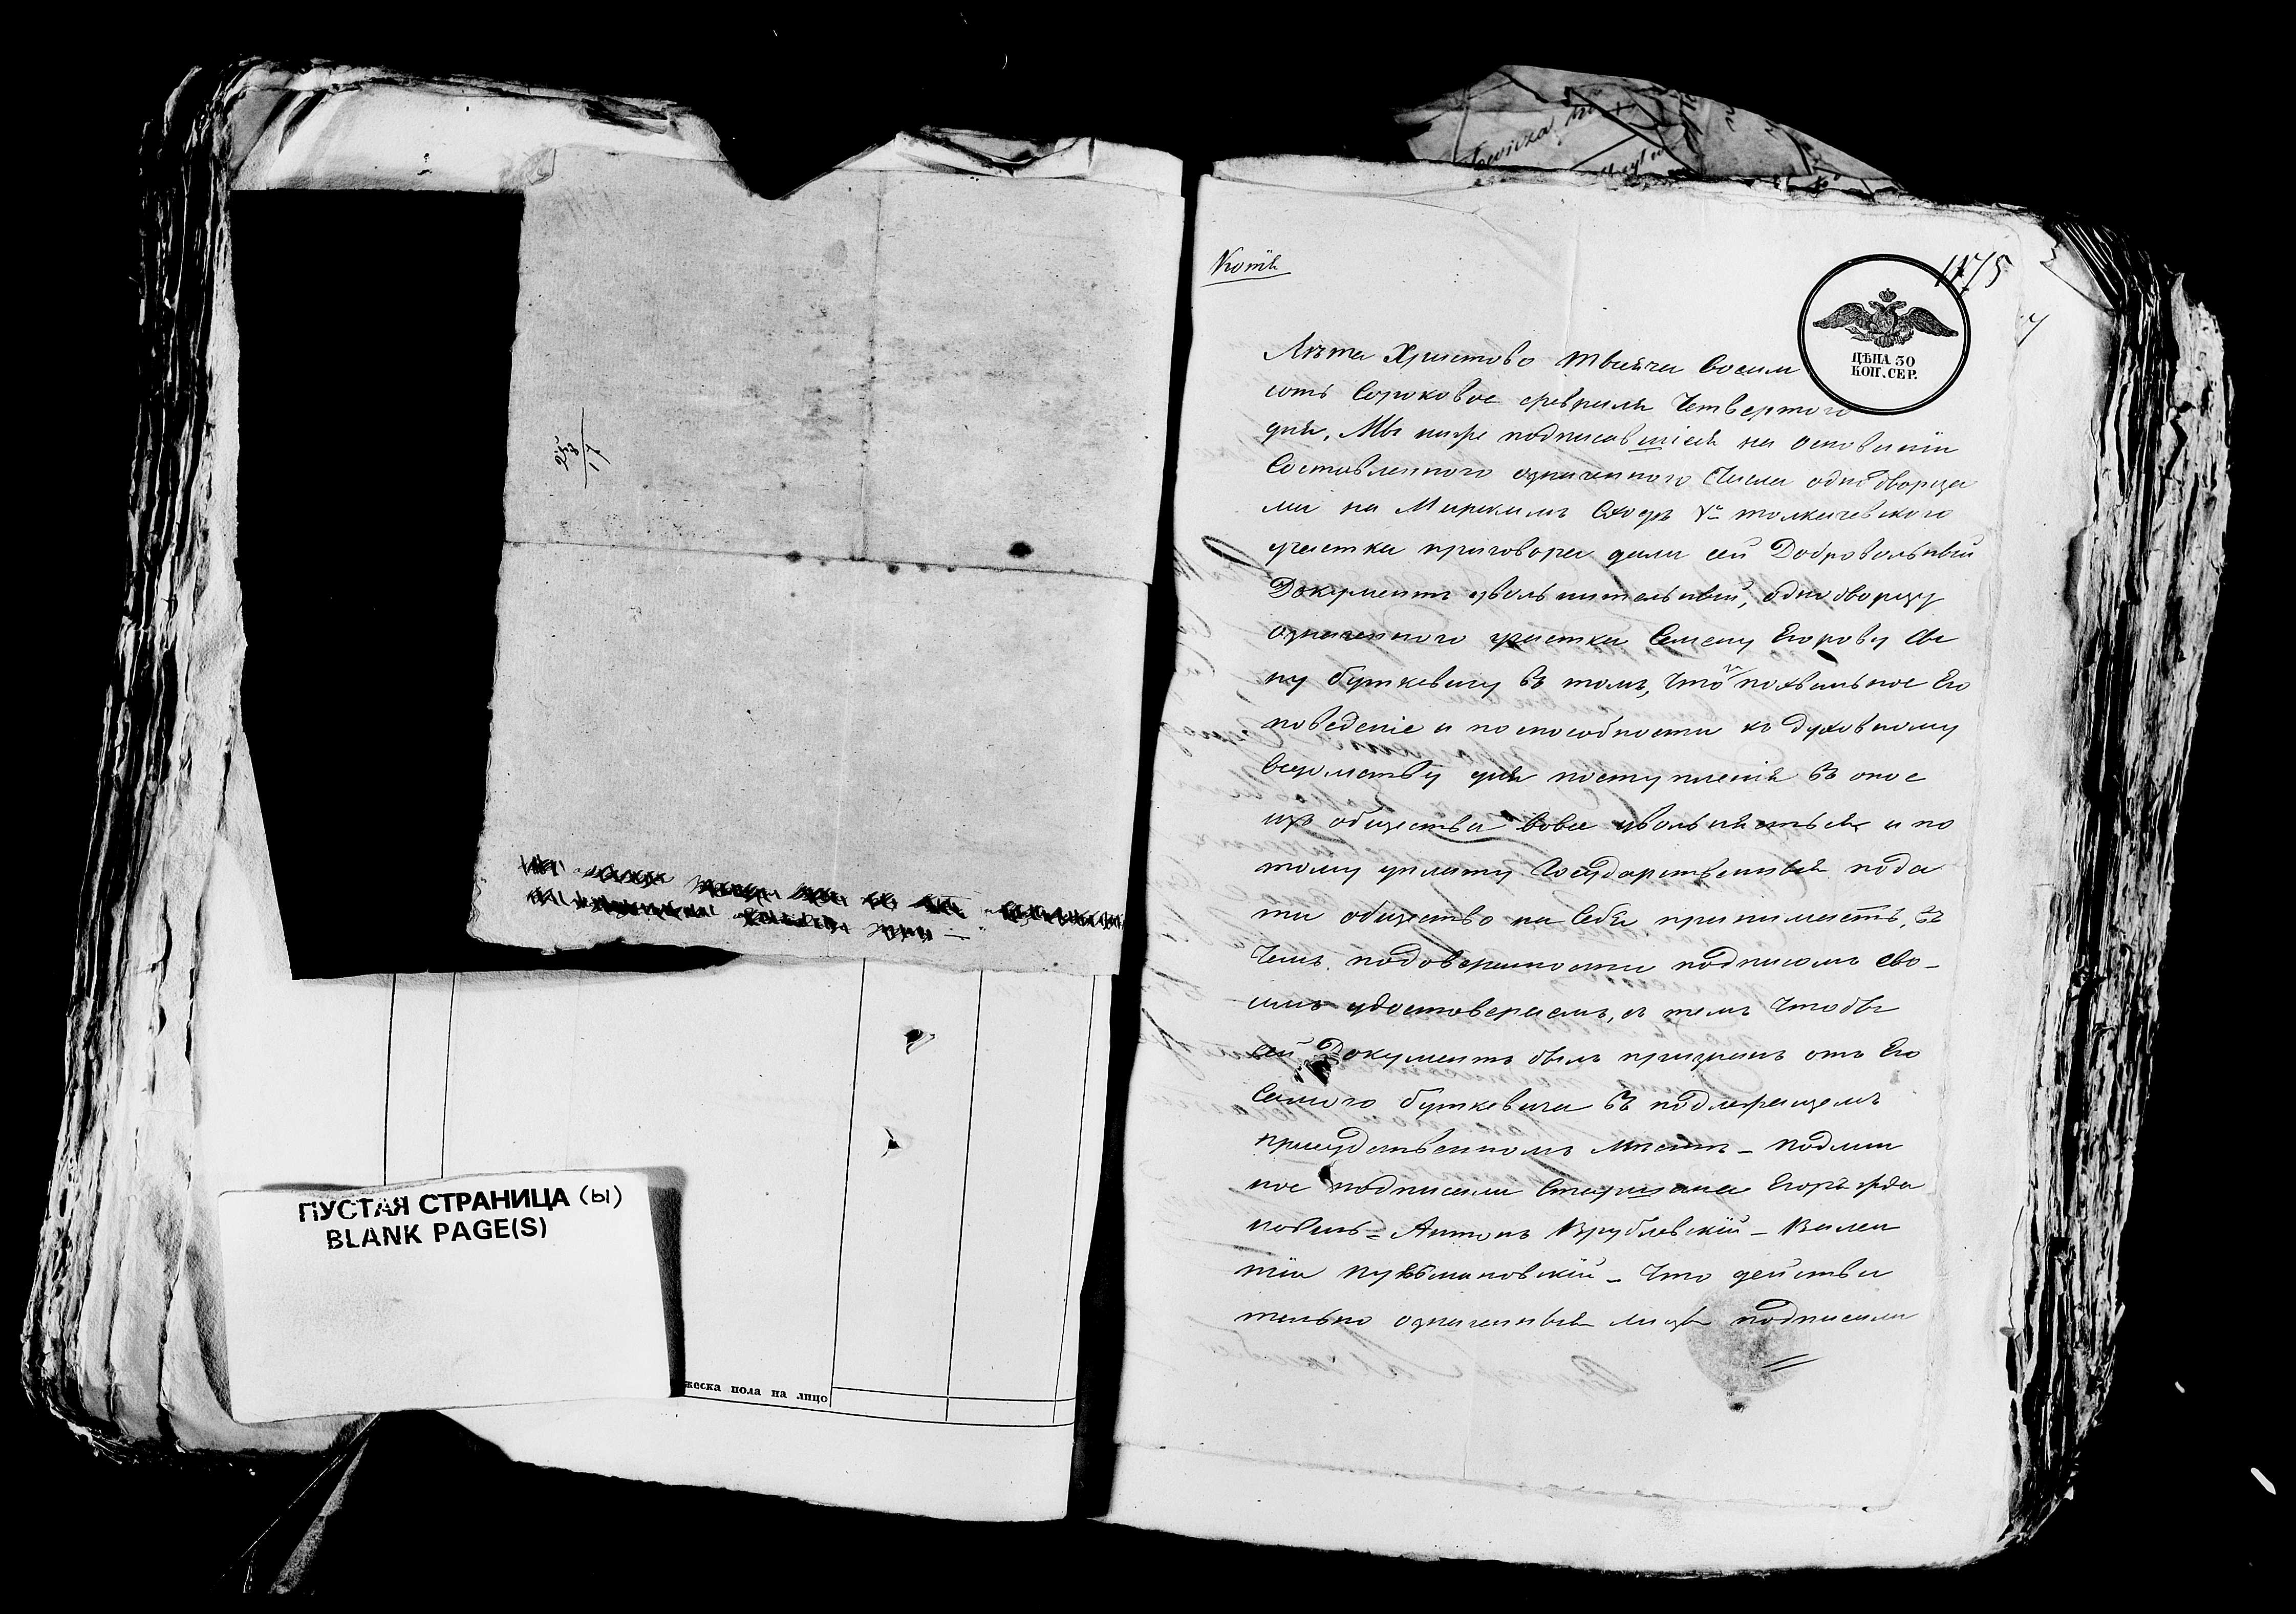 ПУСТАЯ СТРАНИЦА (ы)
BLANK PAGE(S)
жеска пола на лицо
Копія
1175
ЦѢНА 30
КОП. СЕР.
Лѣта Христово тысяча восем
сотъ сороковое февраля четвертого
дня, Мы ниже подписавшіеся на основаніи
составленного означенного числа однодворца
ми на Мирскимъ сходѣ толкачевского
участка приговора дали сей Добровольный
Документъ увольнительный, однодворцу
означенного участка Семену Егорову сы
ну буткевичу въ томъ, что похвальное Его
поведеніе и по способности къ духовному
ведомству для поступленія въ оное
изъ общества вовсе увольняеться и по
тому уплату Государственныя пода
ти общество на себя принимаетъ, въ
чемъ подоверенности подписомъ сво-
имъ удостоверяемъ, съ темъ чтобы
сей Документъ былъ признанъ отъ Его
самого буткевича въ подлежащемъ
присудственномъ местѣ - подлин
ное подписали Старшина Егоръ жда
новичъ - Антонъ Врублевскій - Вален
тій - что действи
тельно означенныя лица подписали